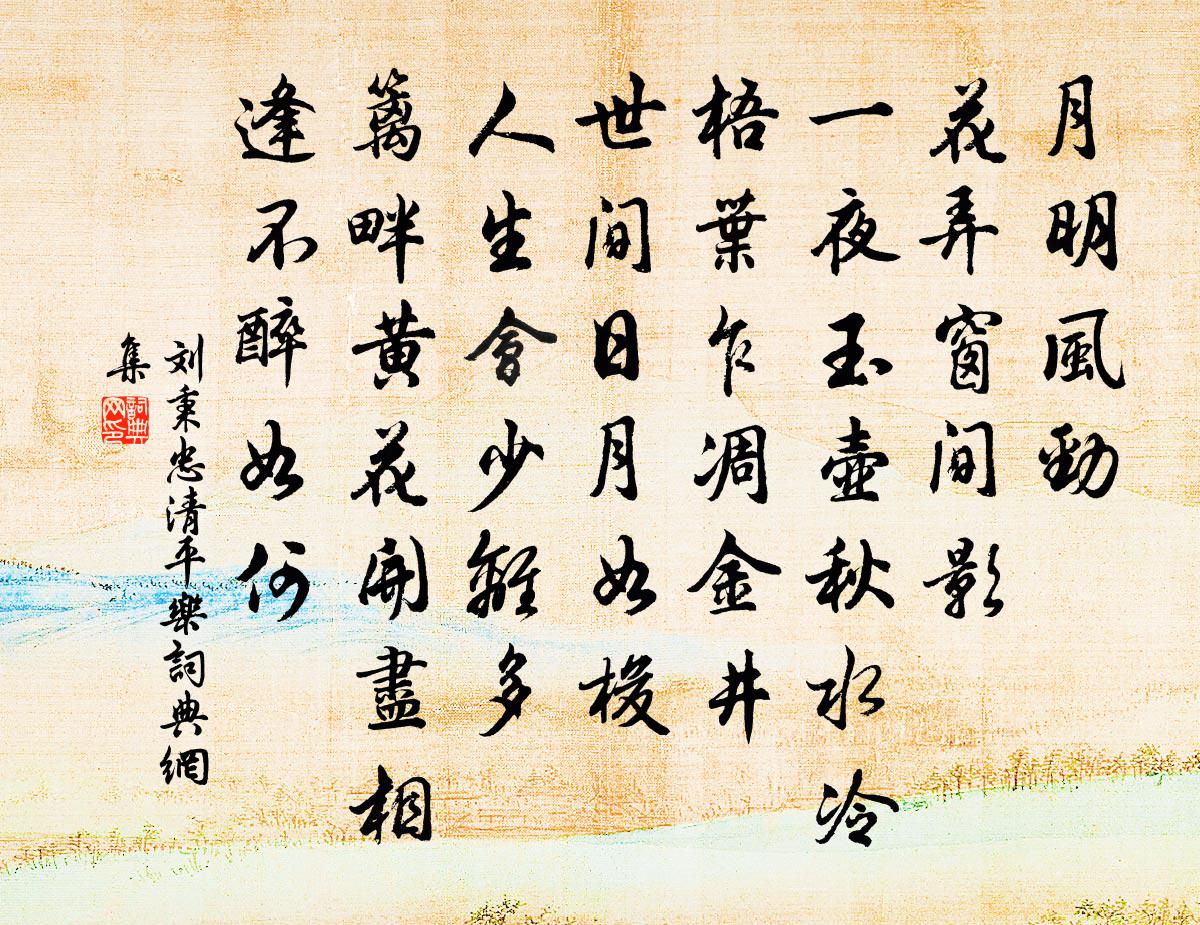 月明風勁
花弄窗間影
一夜玉壺秋水冷
梧葉乍凋金井
世間日月如梭
人生會少離多
籬畔黃花開盡相
逢不醉如何
刘秉忠清平樂詞典網
集
詞典
网印